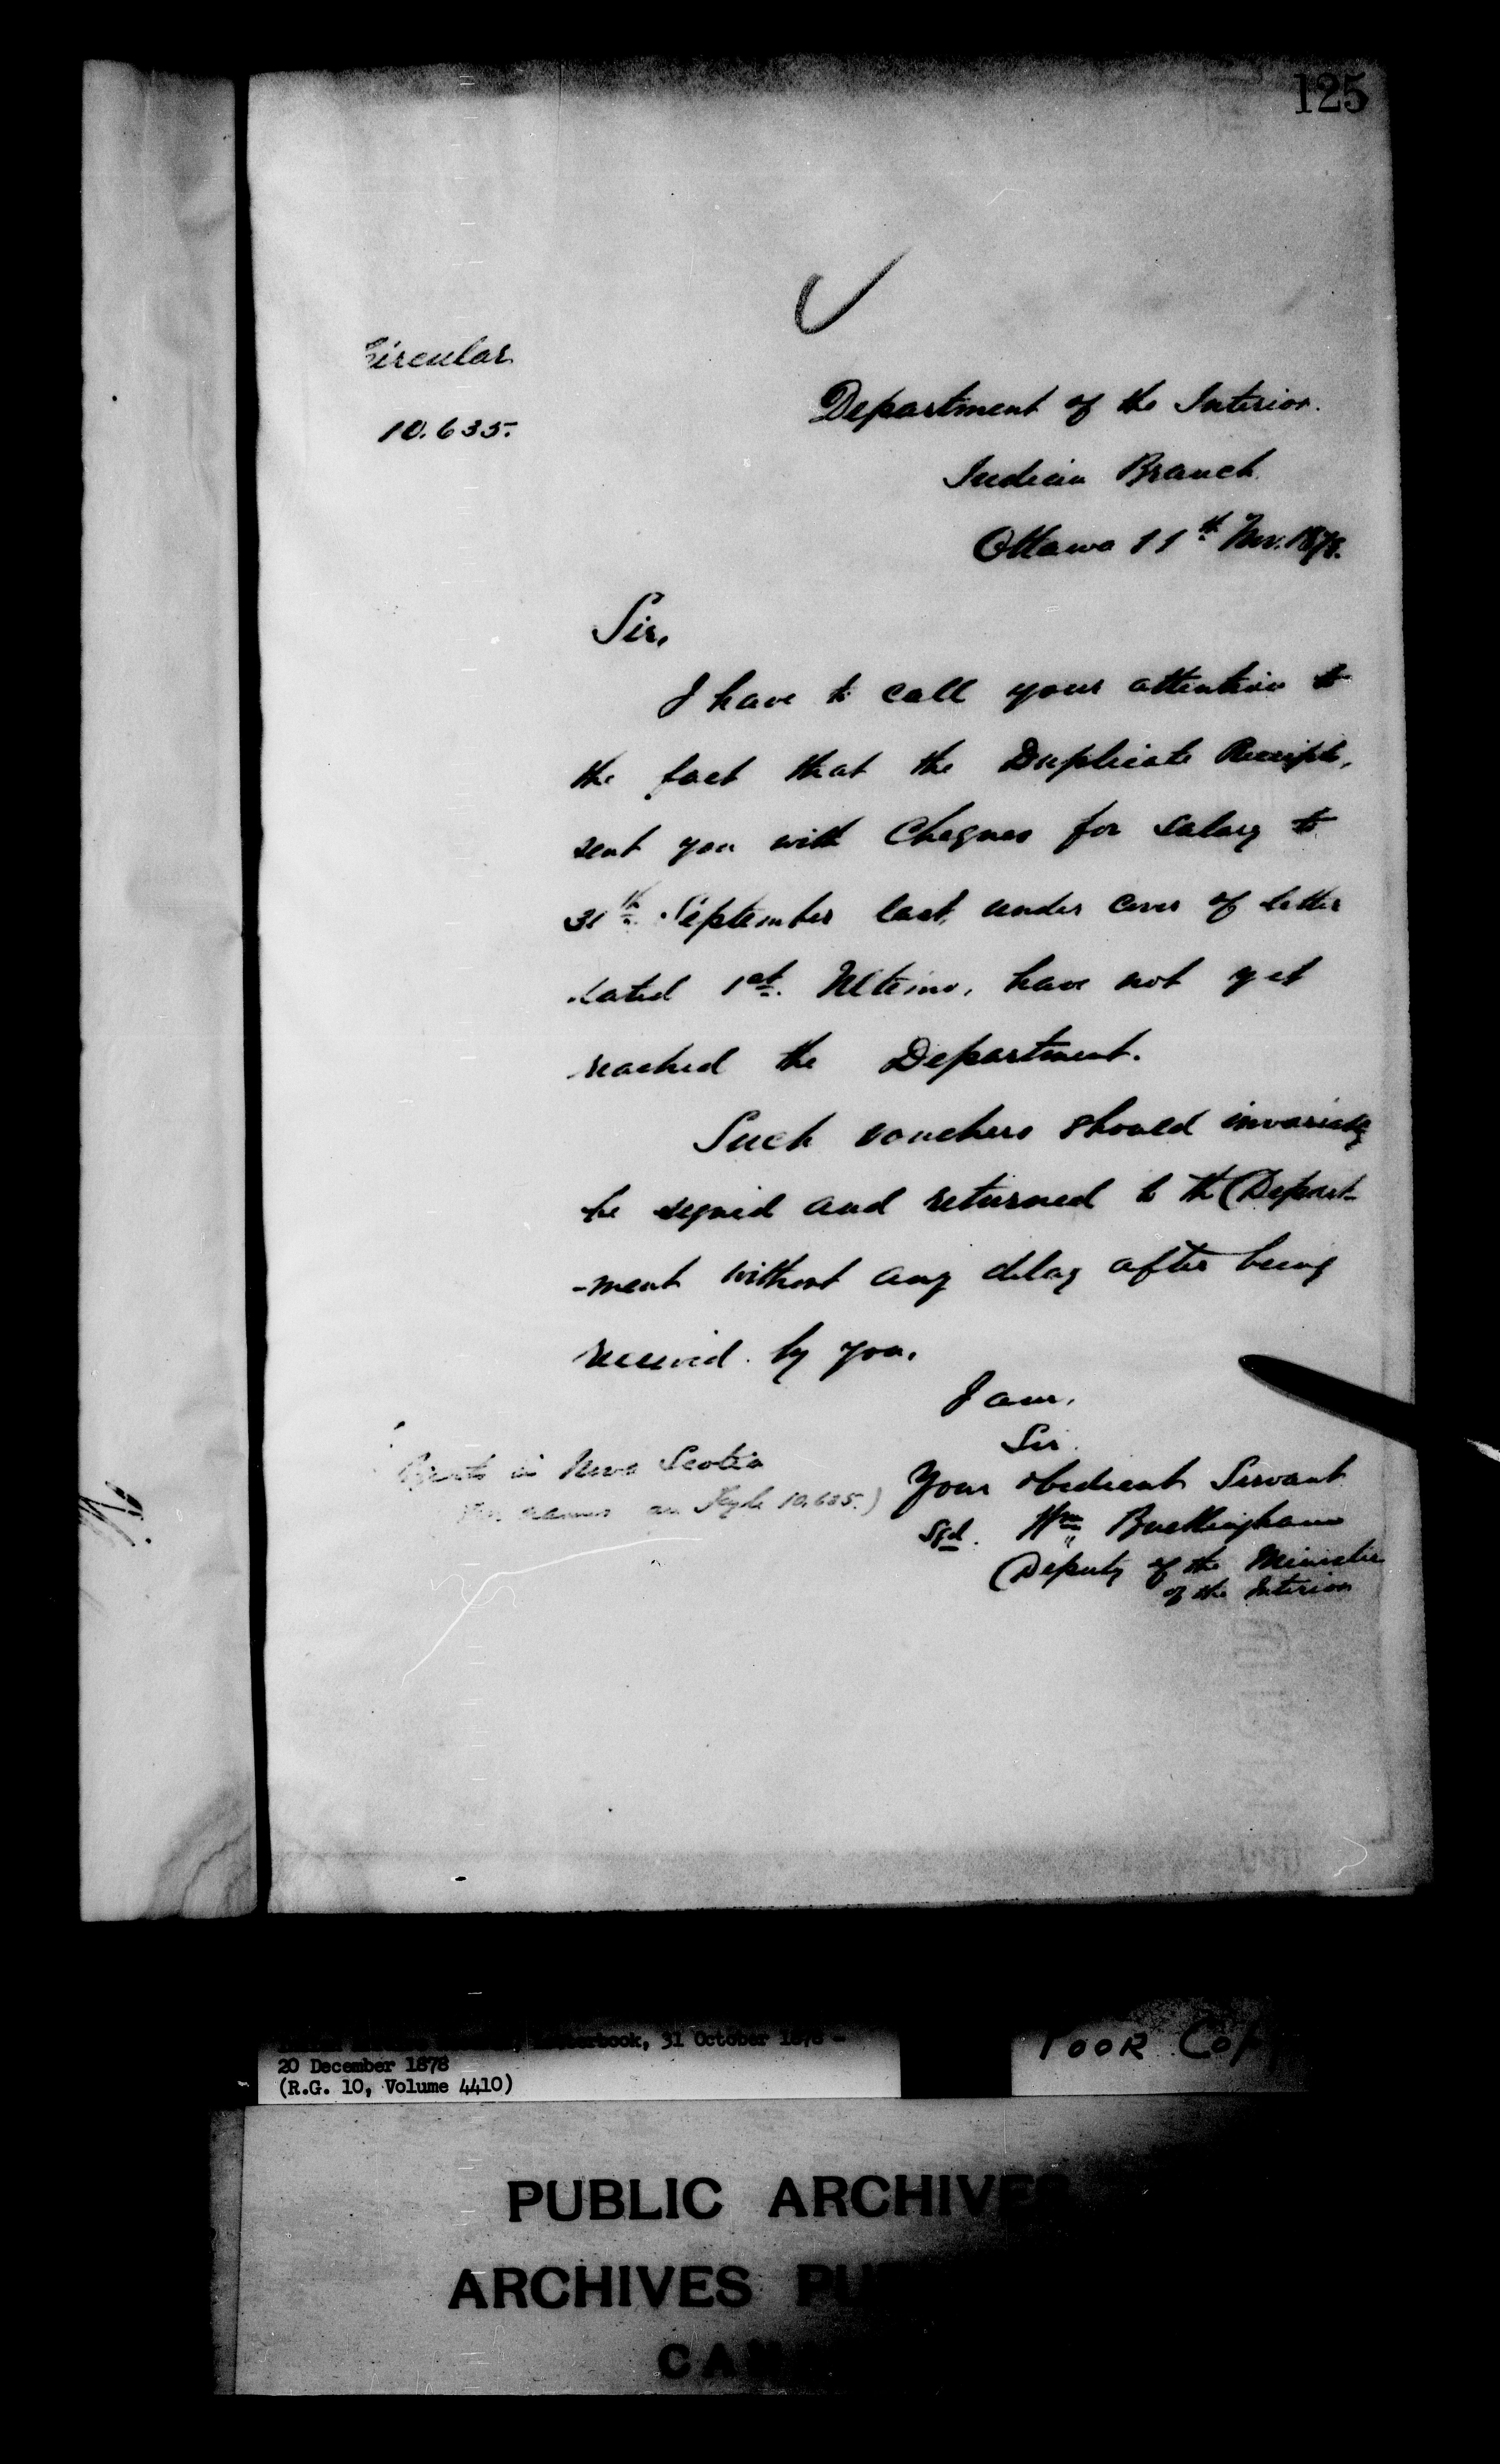 125
Circular
10.635.
Department of the Interior.
Indian Branch
Ottawa 11th Nov. 1878.
Sir,
I have to call your attention to
the fact that the Duplicate Receipts,
sent you with Cheques for salary to
September last, under cover of letter
dated 1st. Ultimo, have not yet
reached the Department.
Such vouchers should invariably
be signed and returned to the Depart-
-ment without any delay after being
received by you.
I am,
Sir.
Your obedient Servant
Sgd. Wm Buckingham
Deputy of the Minister
of the Interior
Agents in Nova Scotia
names on 10.635.)
Letterbook, 31 October 1878 -
20 December 1878
(R.G. 10, Volume 4410)
POOR COPY
PUBLIC ARCHIVES
ARCHIVES PU
CAN